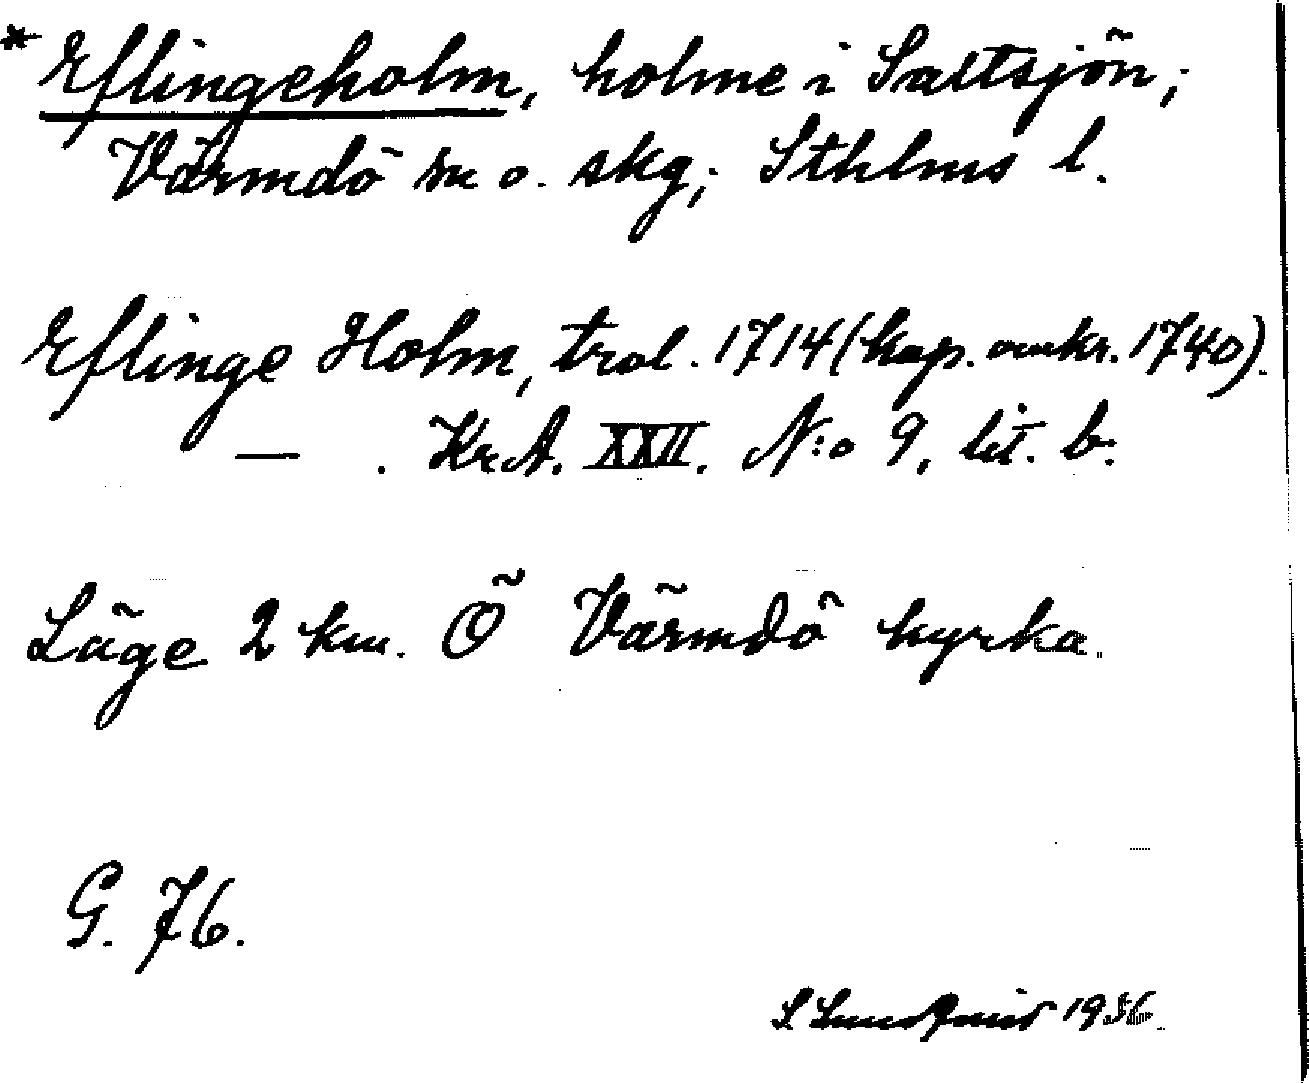 * Eflingeholm, holme i Saltsjön;
Värmdö sn o. skg; Sthlms l.
Eflinge Holm, trol. 1714 (kop. omkr. 1740).
— . KrA. XXII. N:o 9, lit. b.
Läge 2 km. Ö Värmdö kyrka.
G. 76.
S Lundqvist 1936.